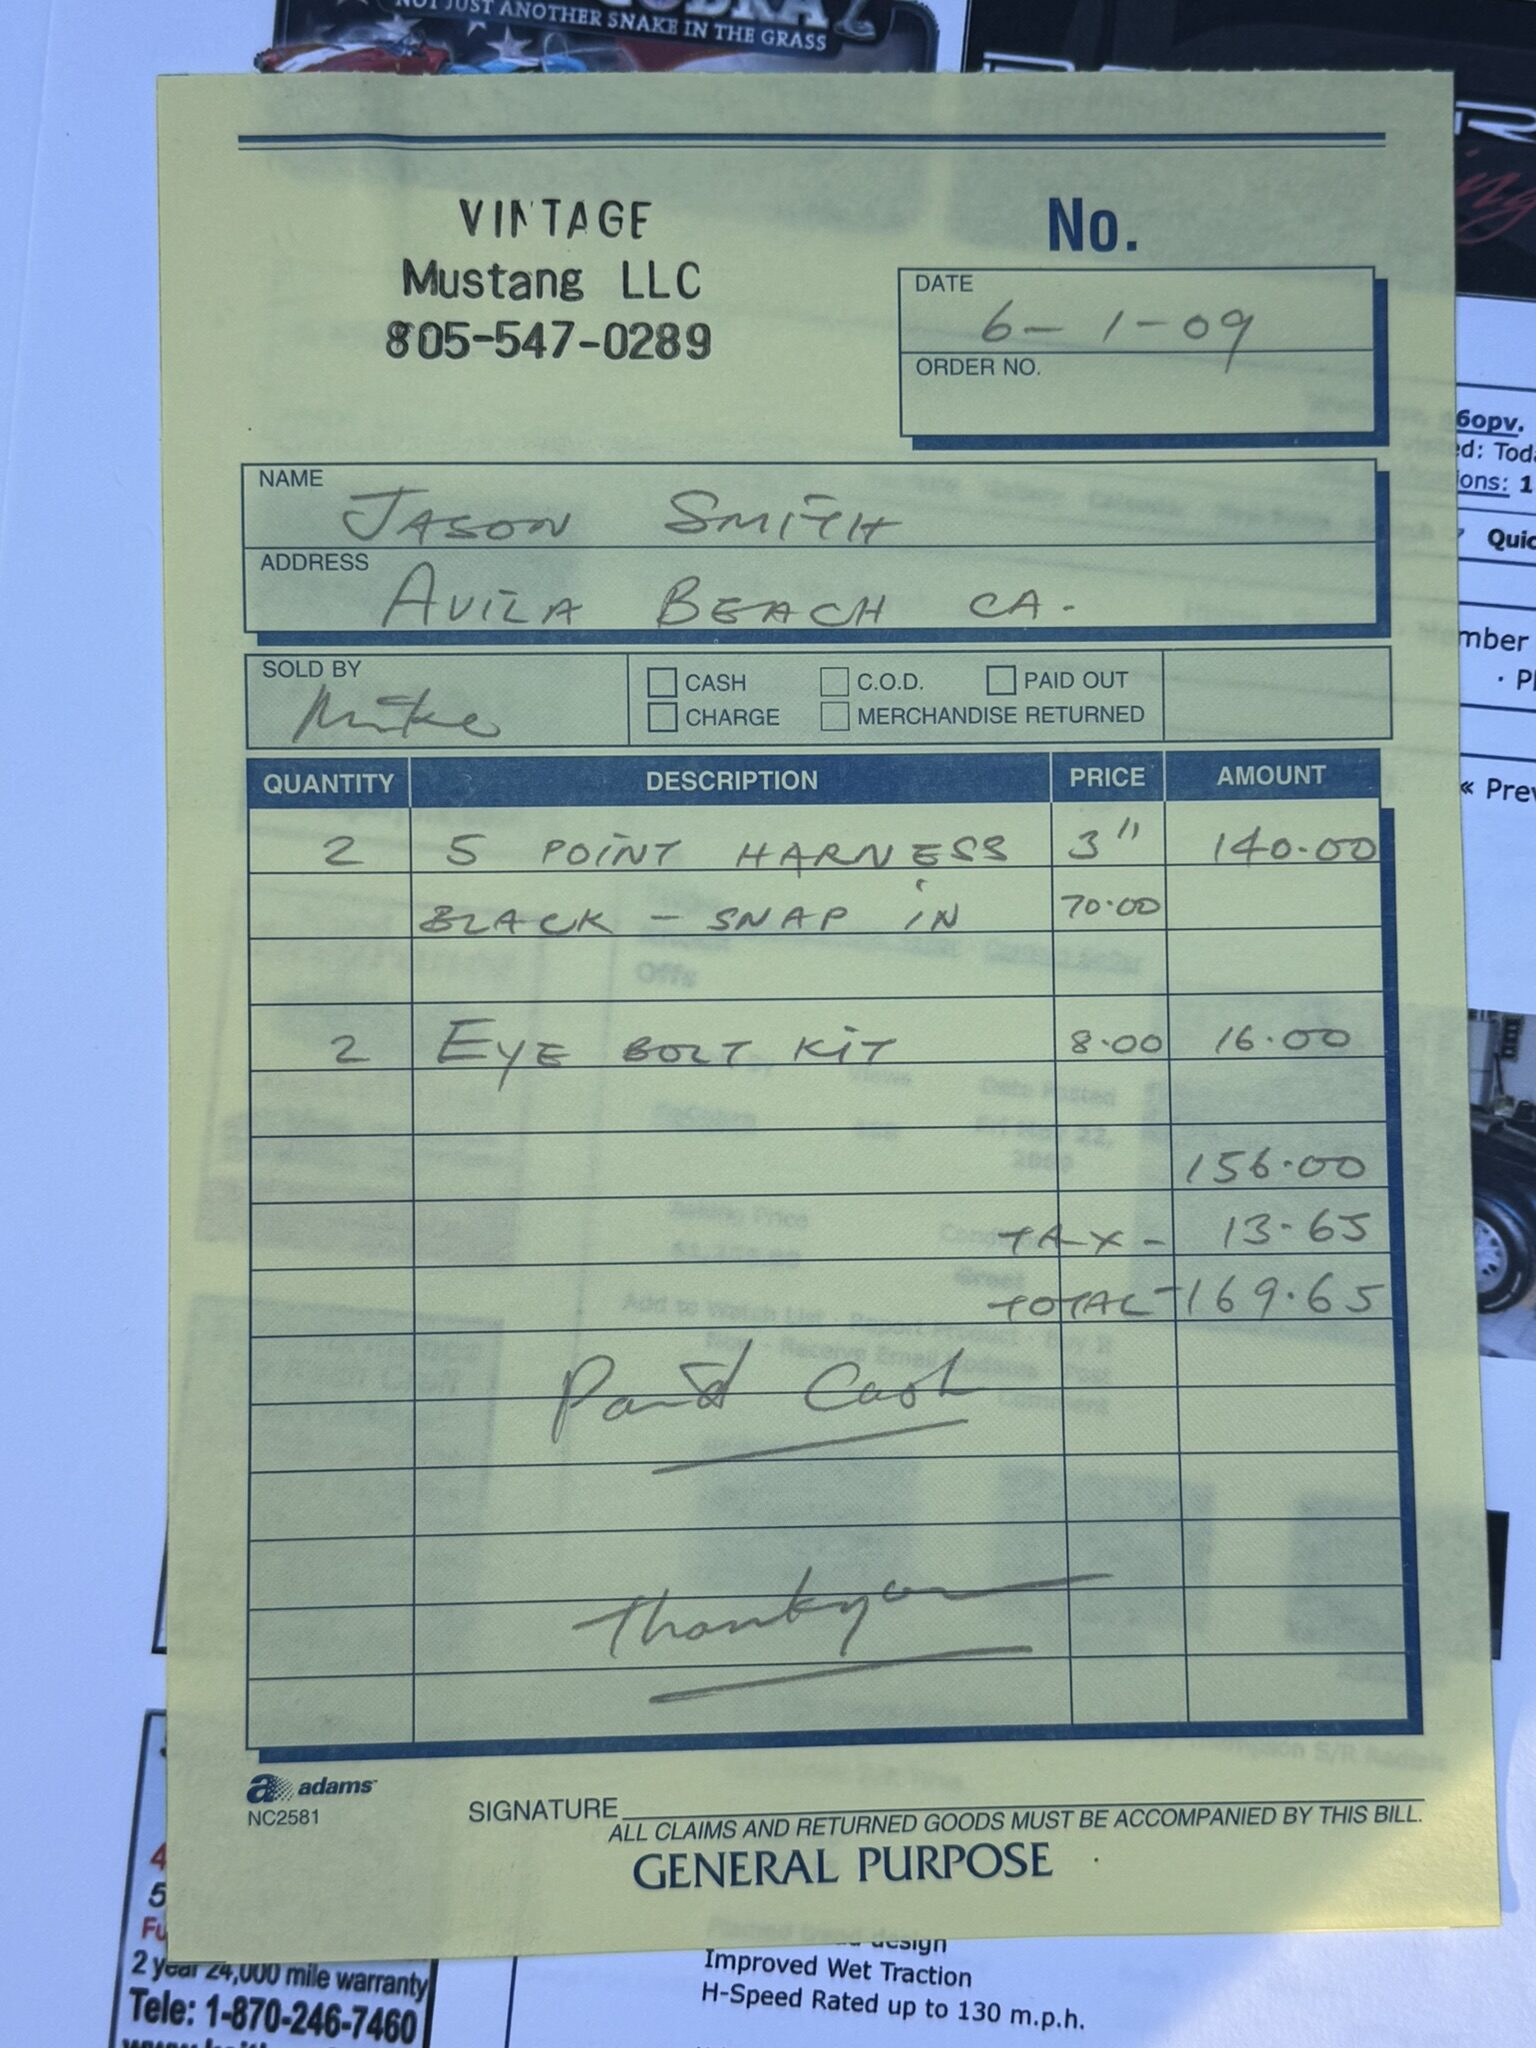 NOT JUST ANOTHER SNAKE IN THE GRASS
VINTAGE
Mustang LLC
805-547-0289
No.
DATE
6-1-09
ORDER NO.
NAME
JASON SMITH
ADDRESS
AVILA BEACH CA.
SOLD BY
Mike
CASH C.O.D. PAID OUT
CHARGE MERCHANDISE RETURNED
QUANTITY DESCRIPTION PRICE AMOUNT
2 5 POINT HARNESS 3" 140.00
BLACK - SNAP IN 70.00
2 EYE BOLT KIT 8.00 16.00
156.00
TAX - 13.65
TOTAL - 169.65
Paid Cash
Thankyou
adams
NC2581
SIGNATURE
ALL CLAIMS AND RETURNED GOODS MUST BE ACCOMPANIED BY THIS BILL.
GENERAL PURPOSE
6opv.
ed: Toda
ions: 1
Quic
mber
· Pl
« Prev
design
Improved Wet Traction
H-Speed Rated up to 130 m.p.h.
2 year 24,000 mile warranty
Tele: 1-870-246-7460